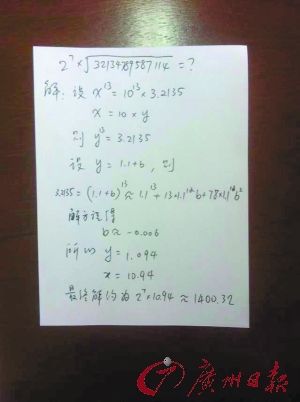 2⁷×√32134789587114 =?
解：设 x¹³=10¹³×3.2135
x=10×y
则 y¹³=3.2135
设 y=1.1+b，则
3.2135=(1.1+b)¹³≈1.1¹³+13×1.1¹²b+78×1.1¹¹b²
解方程得
b≈-0.006
所以 y=1.094
x=10.94
最终解约为 2⁷×10.94≈1400.32
广州日报